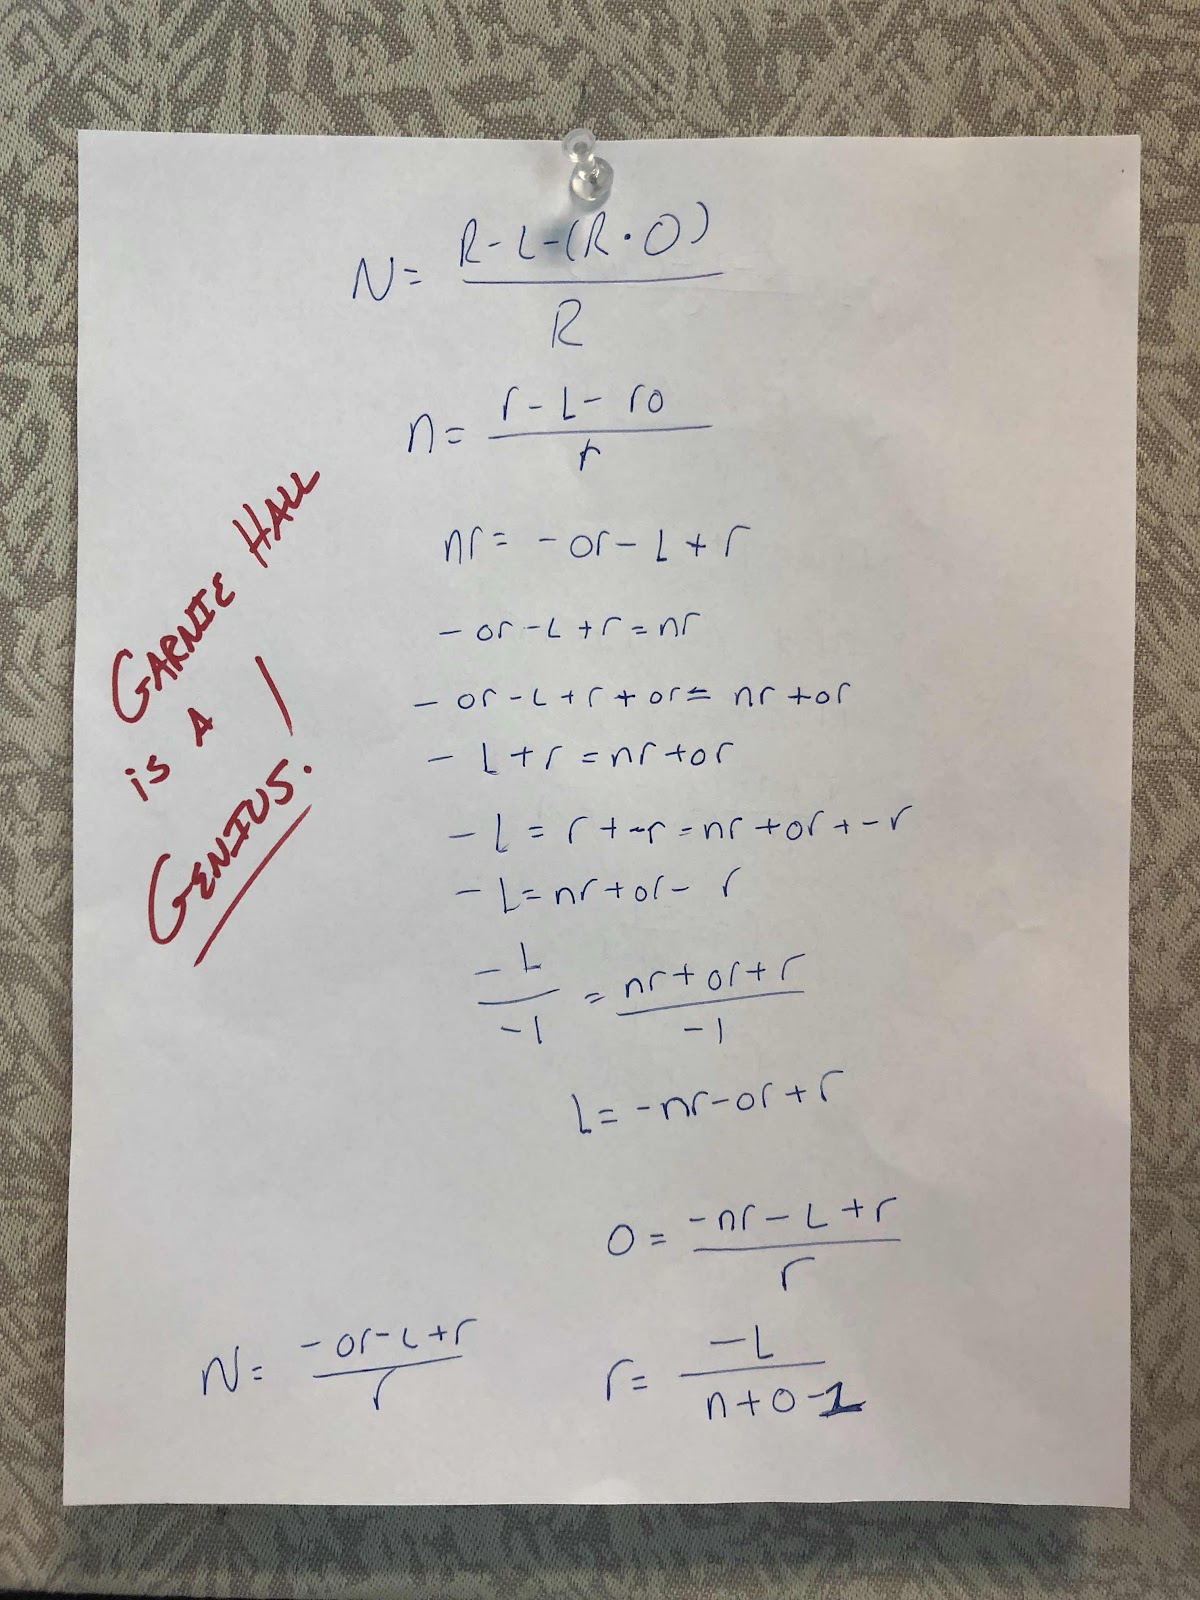 N= R-L-(R·O)
R
n= r-L-ro
r
nr= -or-L+r
-or-L+r=nr
-or-L+r+or= nr+or
-L+r=nr+or
-L= r+-r=nr+or+-r
-L=nr+or- r
-L = nr+or+r
-1 -1
L= -nr-or+r
O= -nr-L+r
r
N= -or-L+r
r
r= -L
n+o-1
GARNIE HALL
is A
GENIUS!